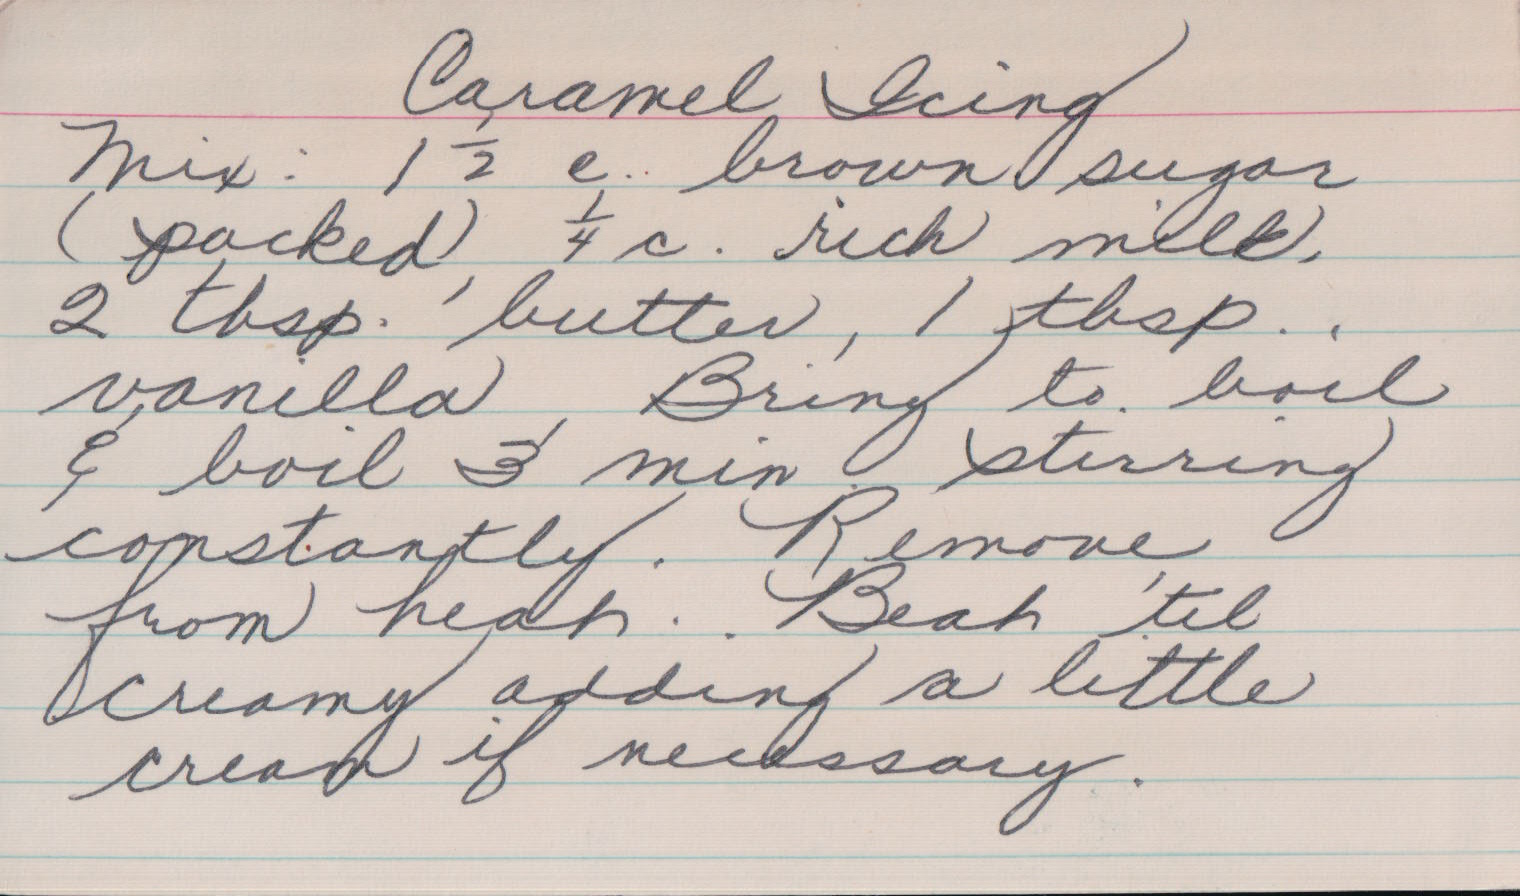 Caramel Icing
Mix: 1 1/2 c. brown sugar
(packed), 1/4 c. rich milk,
2 tbsp. butter, 1 tbsp.
vanilla, Bring to boil
& boil 3 min. stirring
constantly. Remove
from heat. Beat 'til
creamy adding a little
cream if necessary.